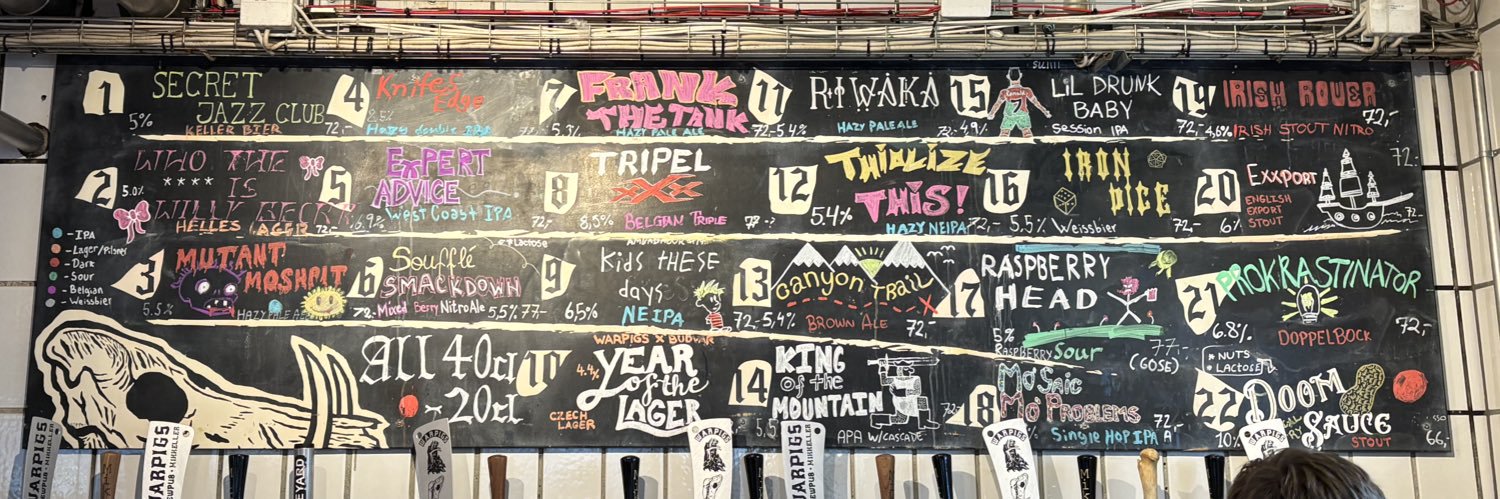 1
SECRET
JAZZ CLUB
5%
KELLER BIER
72,-
2
WHO THE
**** IS
WILLY BECKR
5.0%
HELLES LAGER
72,-
- IPA
- Lager/Pilsnes
- Dark
- Sour
- Belgian
- Weissbier
3
MUTANT
MOSHPIT
5.5%
HAZY PALE ALE
72,-
4
Knifes
Edge
8.5%
Hazy double IPA
72,-
5
EXPERT
ADVICE
6.9%
West Coast IPA
72,-
6
*Lactose
Soufflé
SMACKDOWN
Mixed Berry Nitro Ale 5,5% 77-
ALL 40cl
- 20cl
7
FRANK
THE TANK
5.3%
HAZY PALE ALE
72,-
8
TRIPEL
XXX
8,5%
BELGIAN TRIPLE
9
Kids THESE
days
6,5%
NEIPA
72,-
10
WARPIGS X BUDVAR
4.4%
YEAR
of the
LAGER
CZECH
LAGER
11
RIWAKA
5.4%
HAZY PALE ALE
72,-
12
THINLIZE
THIS!
5.4%
HAZY NEIPA
72,-
13
Canyon TRAIL
5,4%
BROWN ALE
72,-
14
KING
of the
MOUNTAIN
5,5
APA W/CASCADE
72,-
15
LiL DRUNK
BABY
4.9%
Session IPA
72,-
16
IRON
DICE
5.5%
Weissbier
72,-
17
RASPBERRY
HEAD
5%
RASPBERRY SOUR
(GOSE)
77-
18
Mo'Saic
Mo'Problems
Single Hop IPA
72,-
19
IRISH ROVER
4,6%
IRISH STOUT NITRO
72,-
20
EXXPORT
ENGLISH
EXPORT
STOUT
6%
72,-
21
PROKRASTINATOR
6.8%
DOPPELBOCK
72,-
22
* NUTS
* LACTOSE
DOOM
SAUCE
10%
STOUT
66,-
WARPIGS
BREWPUB · MIKKELLER
WARPIGS
WARPIGS